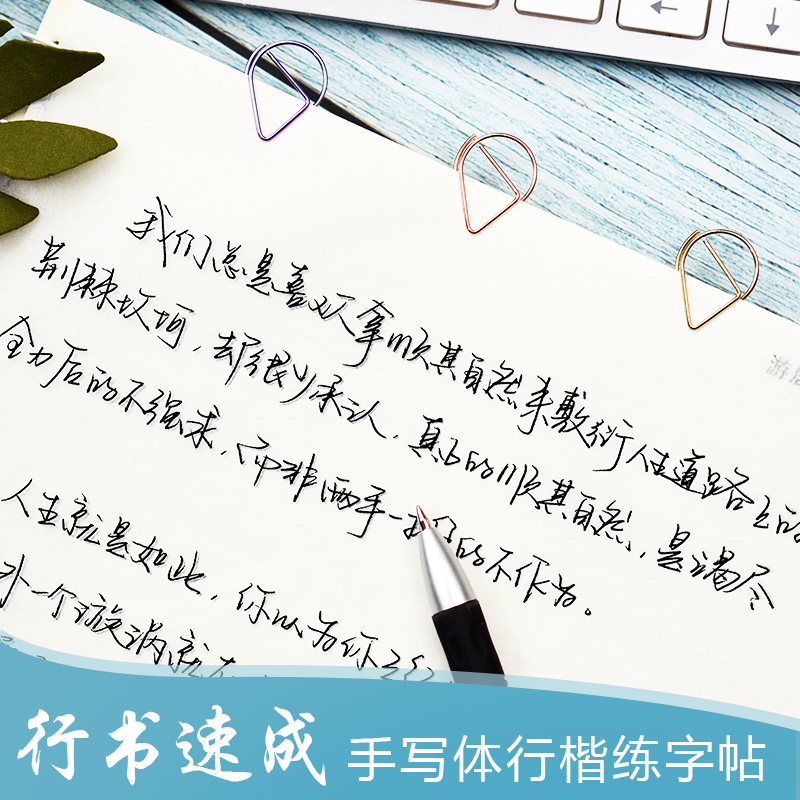 游
我们总是喜欢拿顺其自然来敷衍人生道路上的
荆棘坎坷，却很少承认，真正的顺其自然，是竭尽
全力后的不强求，而非两手一摊的不作为。
人生就是如此，你以为你
一个漩涡就在
行书速成 手写体行楷练字帖